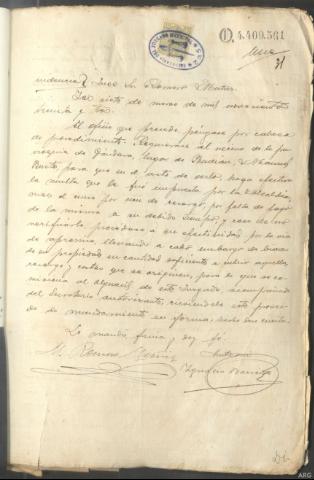 O.4.409.561
31
videncia Juez Sr. Romero Martin
siete de marzo de mil novecientos
treinta y
El oficio que precede póngase por cabeza
de procedimiento. Requiérase al vecino de la pa
rroquia de Gándara, lugar de D. Manuel
para que en el acto de serlo, haga efectiva
la multa que le fué impuesta por la Alcaldía,
mas el por de recargo, por falta de pago
de la misma a su debido tiempo, y caso de no
verificarlo procédase a su efectividad por la vía
de apremio, llevando a cabo embargo de bienes
de su propiedad en cantidad suficiente a cubrir aquella,
recargo y costas que se originen, para lo que se co
misiona al alguacil de este Juzgado, acompañado
del Secretario autorizante, sirviendo esta provi
dencia de mandamiento en forma;
Lo mandó, firma y doy fé.
M. Romero Martin
Ante mi
Ignacio
ARG